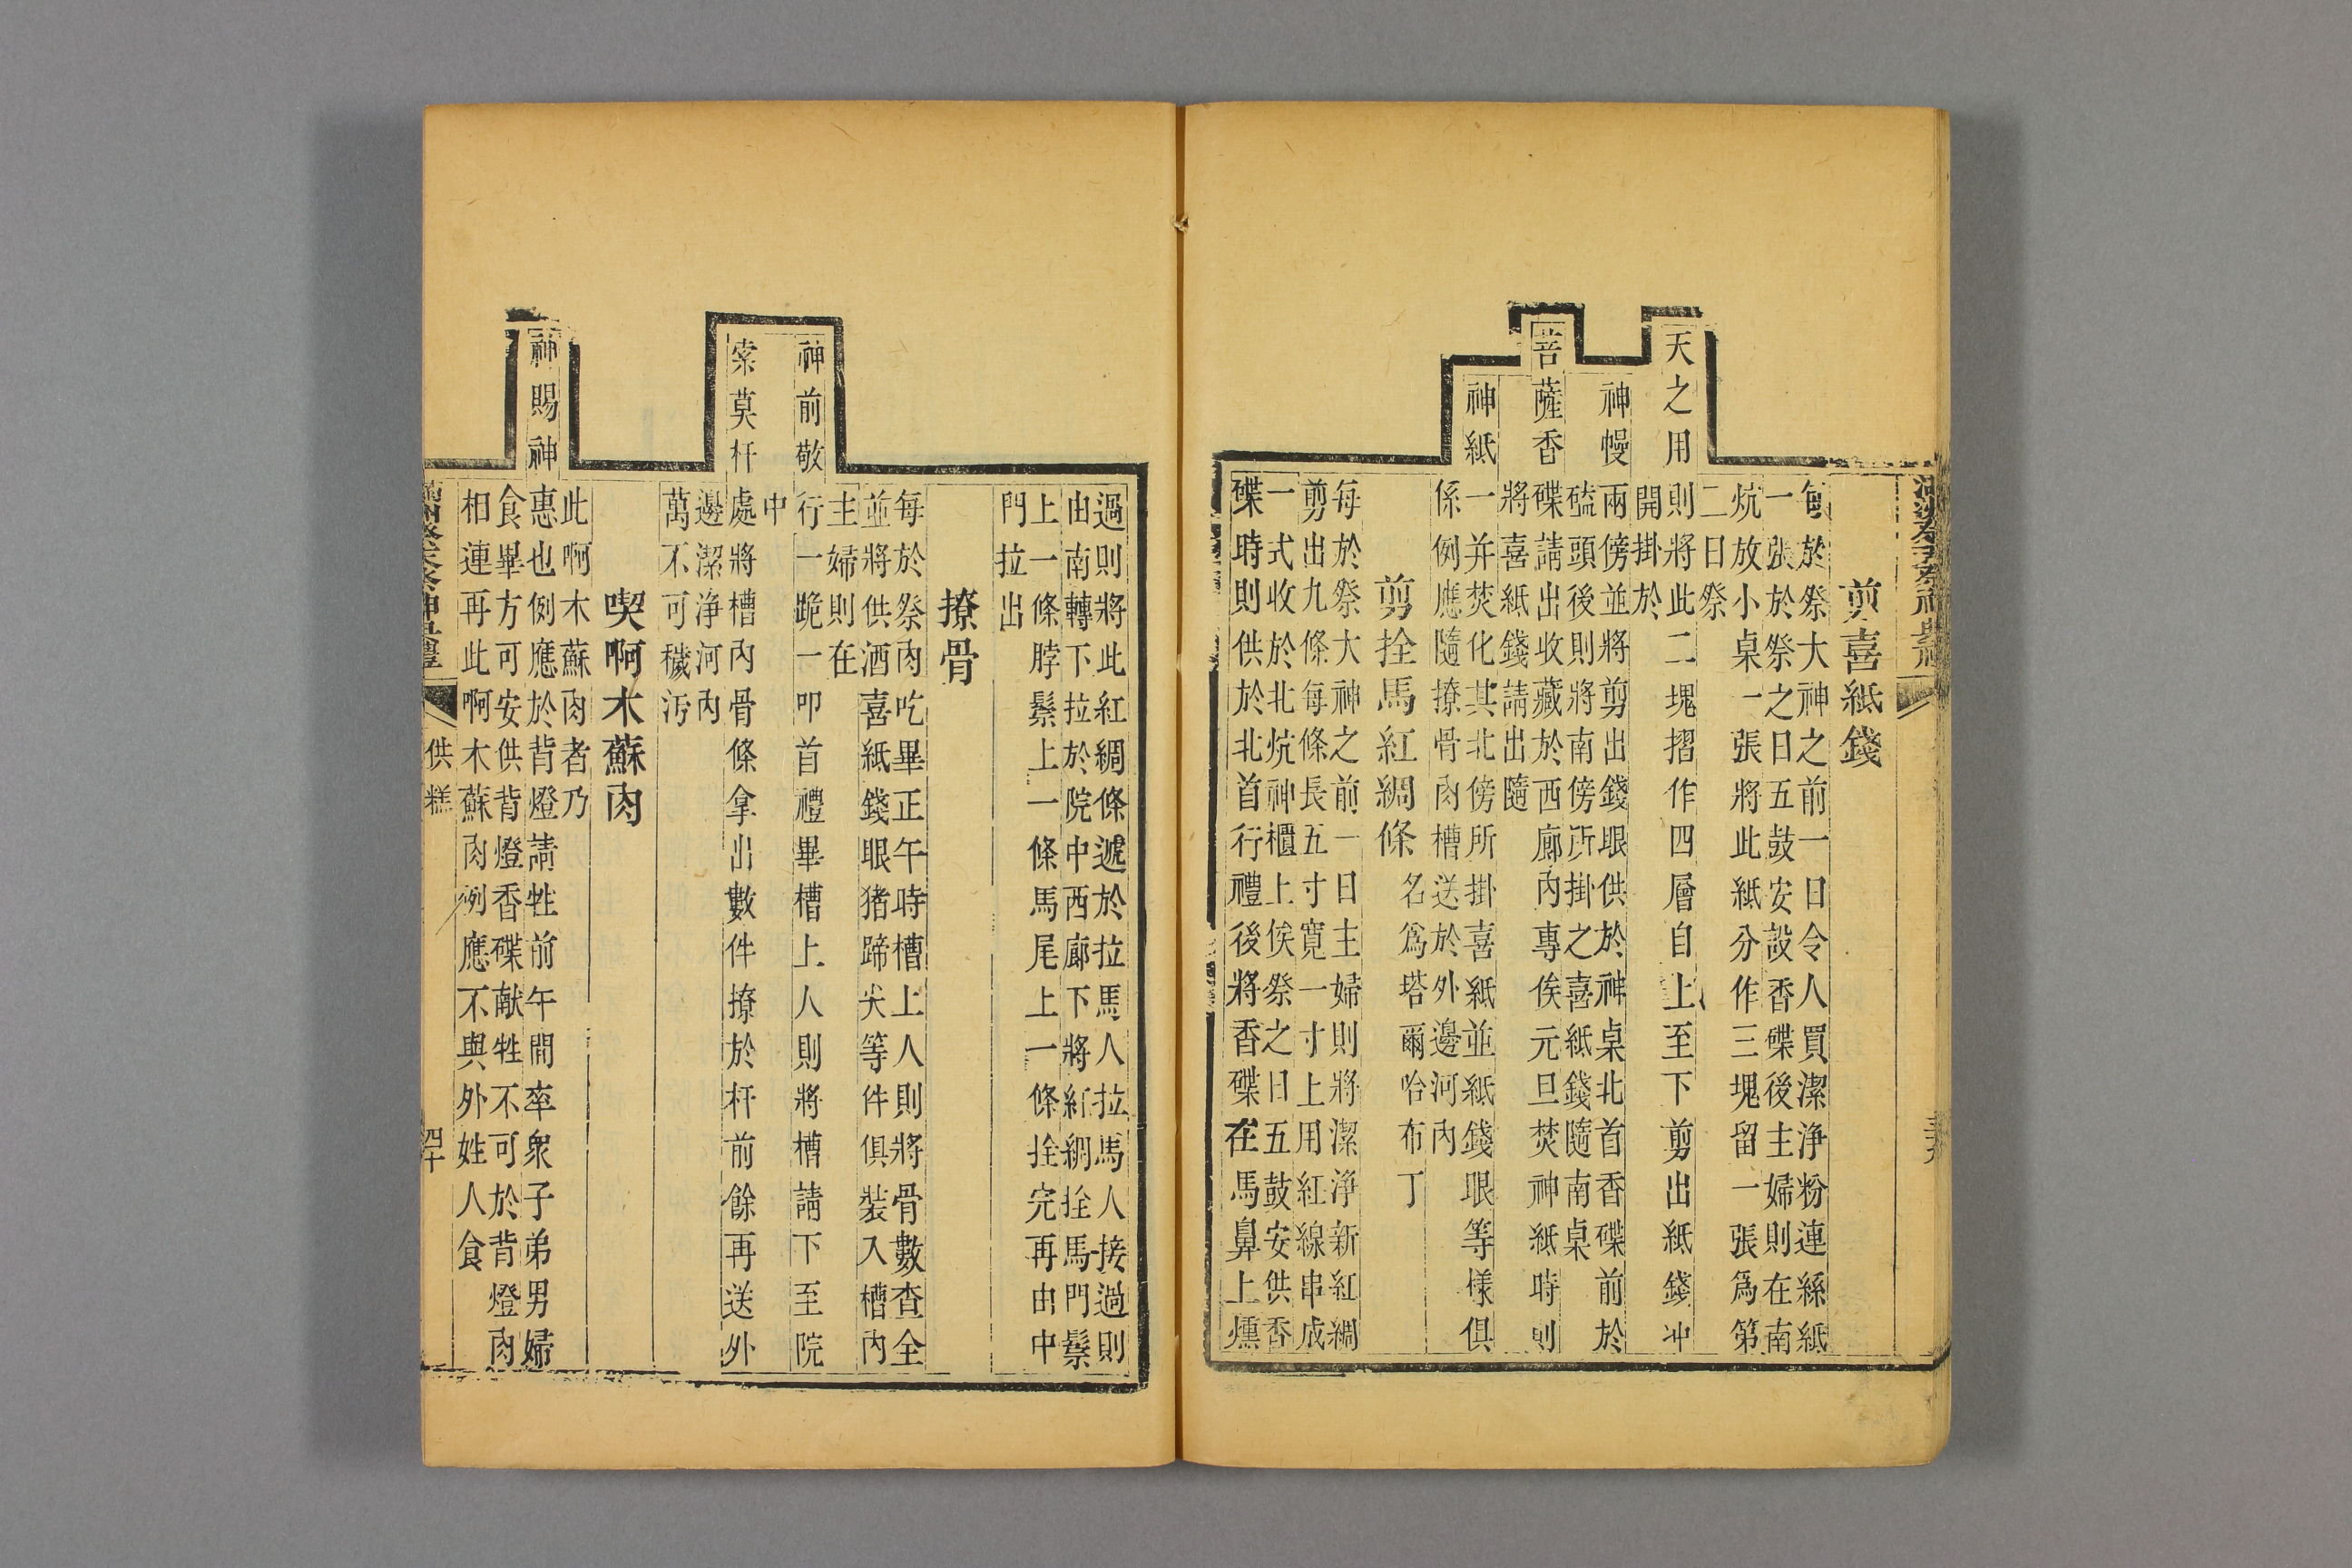 剪喜紙錢
每於祭大神之前一日令人買潔淨粉連絲紙
一張於祭之日五鼓安設香碟後主婦則在南
炕放小桌一張將此紙分作三塊留一張為第
二日祭
天之用則將此二塊摺作四層自上至下剪出紙錢冲
開掛於
神幔兩傍並將剪出錢眼供於神桌北首香碟前於
磕頭後則將南傍所掛之喜紙錢隨南桌
菩薩香碟請出收藏於西廊內專俟元旦焚神紙時則
將喜紙錢請出隨
神紙一并焚化其北傍所掛喜紙並紙錢眼等樣俱
係例應隨撩骨肉槽送於外邊河內
剪拴馬紅綢條 名爲塔爾哈布丁
每於祭大神之前一日主婦則將潔淨新紅綢
剪出九條每條長五寸寬一寸上用紅線串成
一式收於北炕神櫃上俟祭之日五鼓安供香
碟時則供於北首行禮後將香碟在馬鼻上燻
過則將此紅綢條遞於拉馬人拉馬人接過則
由南轉下拉於院中西廊下將紅綢拴馬門鬃
上一條脖鬃上一條馬尾上一條拴完再由中
門拉出
撩骨
每於祭肉吃畢正午時槽上人則將骨數查全
並將供酒喜紙錢眼猪蹄尖等件俱裝入槽內
主婦則在
神前敬行一跪一叩首禮畢槽上人則將槽請下至院
中
索莫杆處將槽內骨條拿出數件撩於杆前餘再送外
邊潔淨河內
萬不可穢汚
喫啊木蘇肉
此啊木蘇肉者乃
神賜神惠也例應於背燈請牲前午間率衆子弟男婦
食畢方可安供背燈香碟献牲不可於背燈肉
相連再此啊木蘇肉例應不與外姓人食
供糕
四十